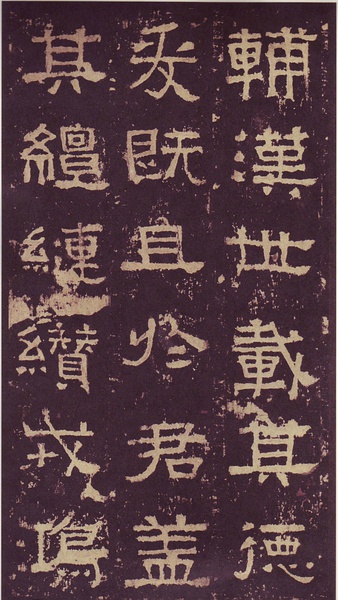 輔漢世載其德
爰既且於君蓋
其繵縺纘戎鴻